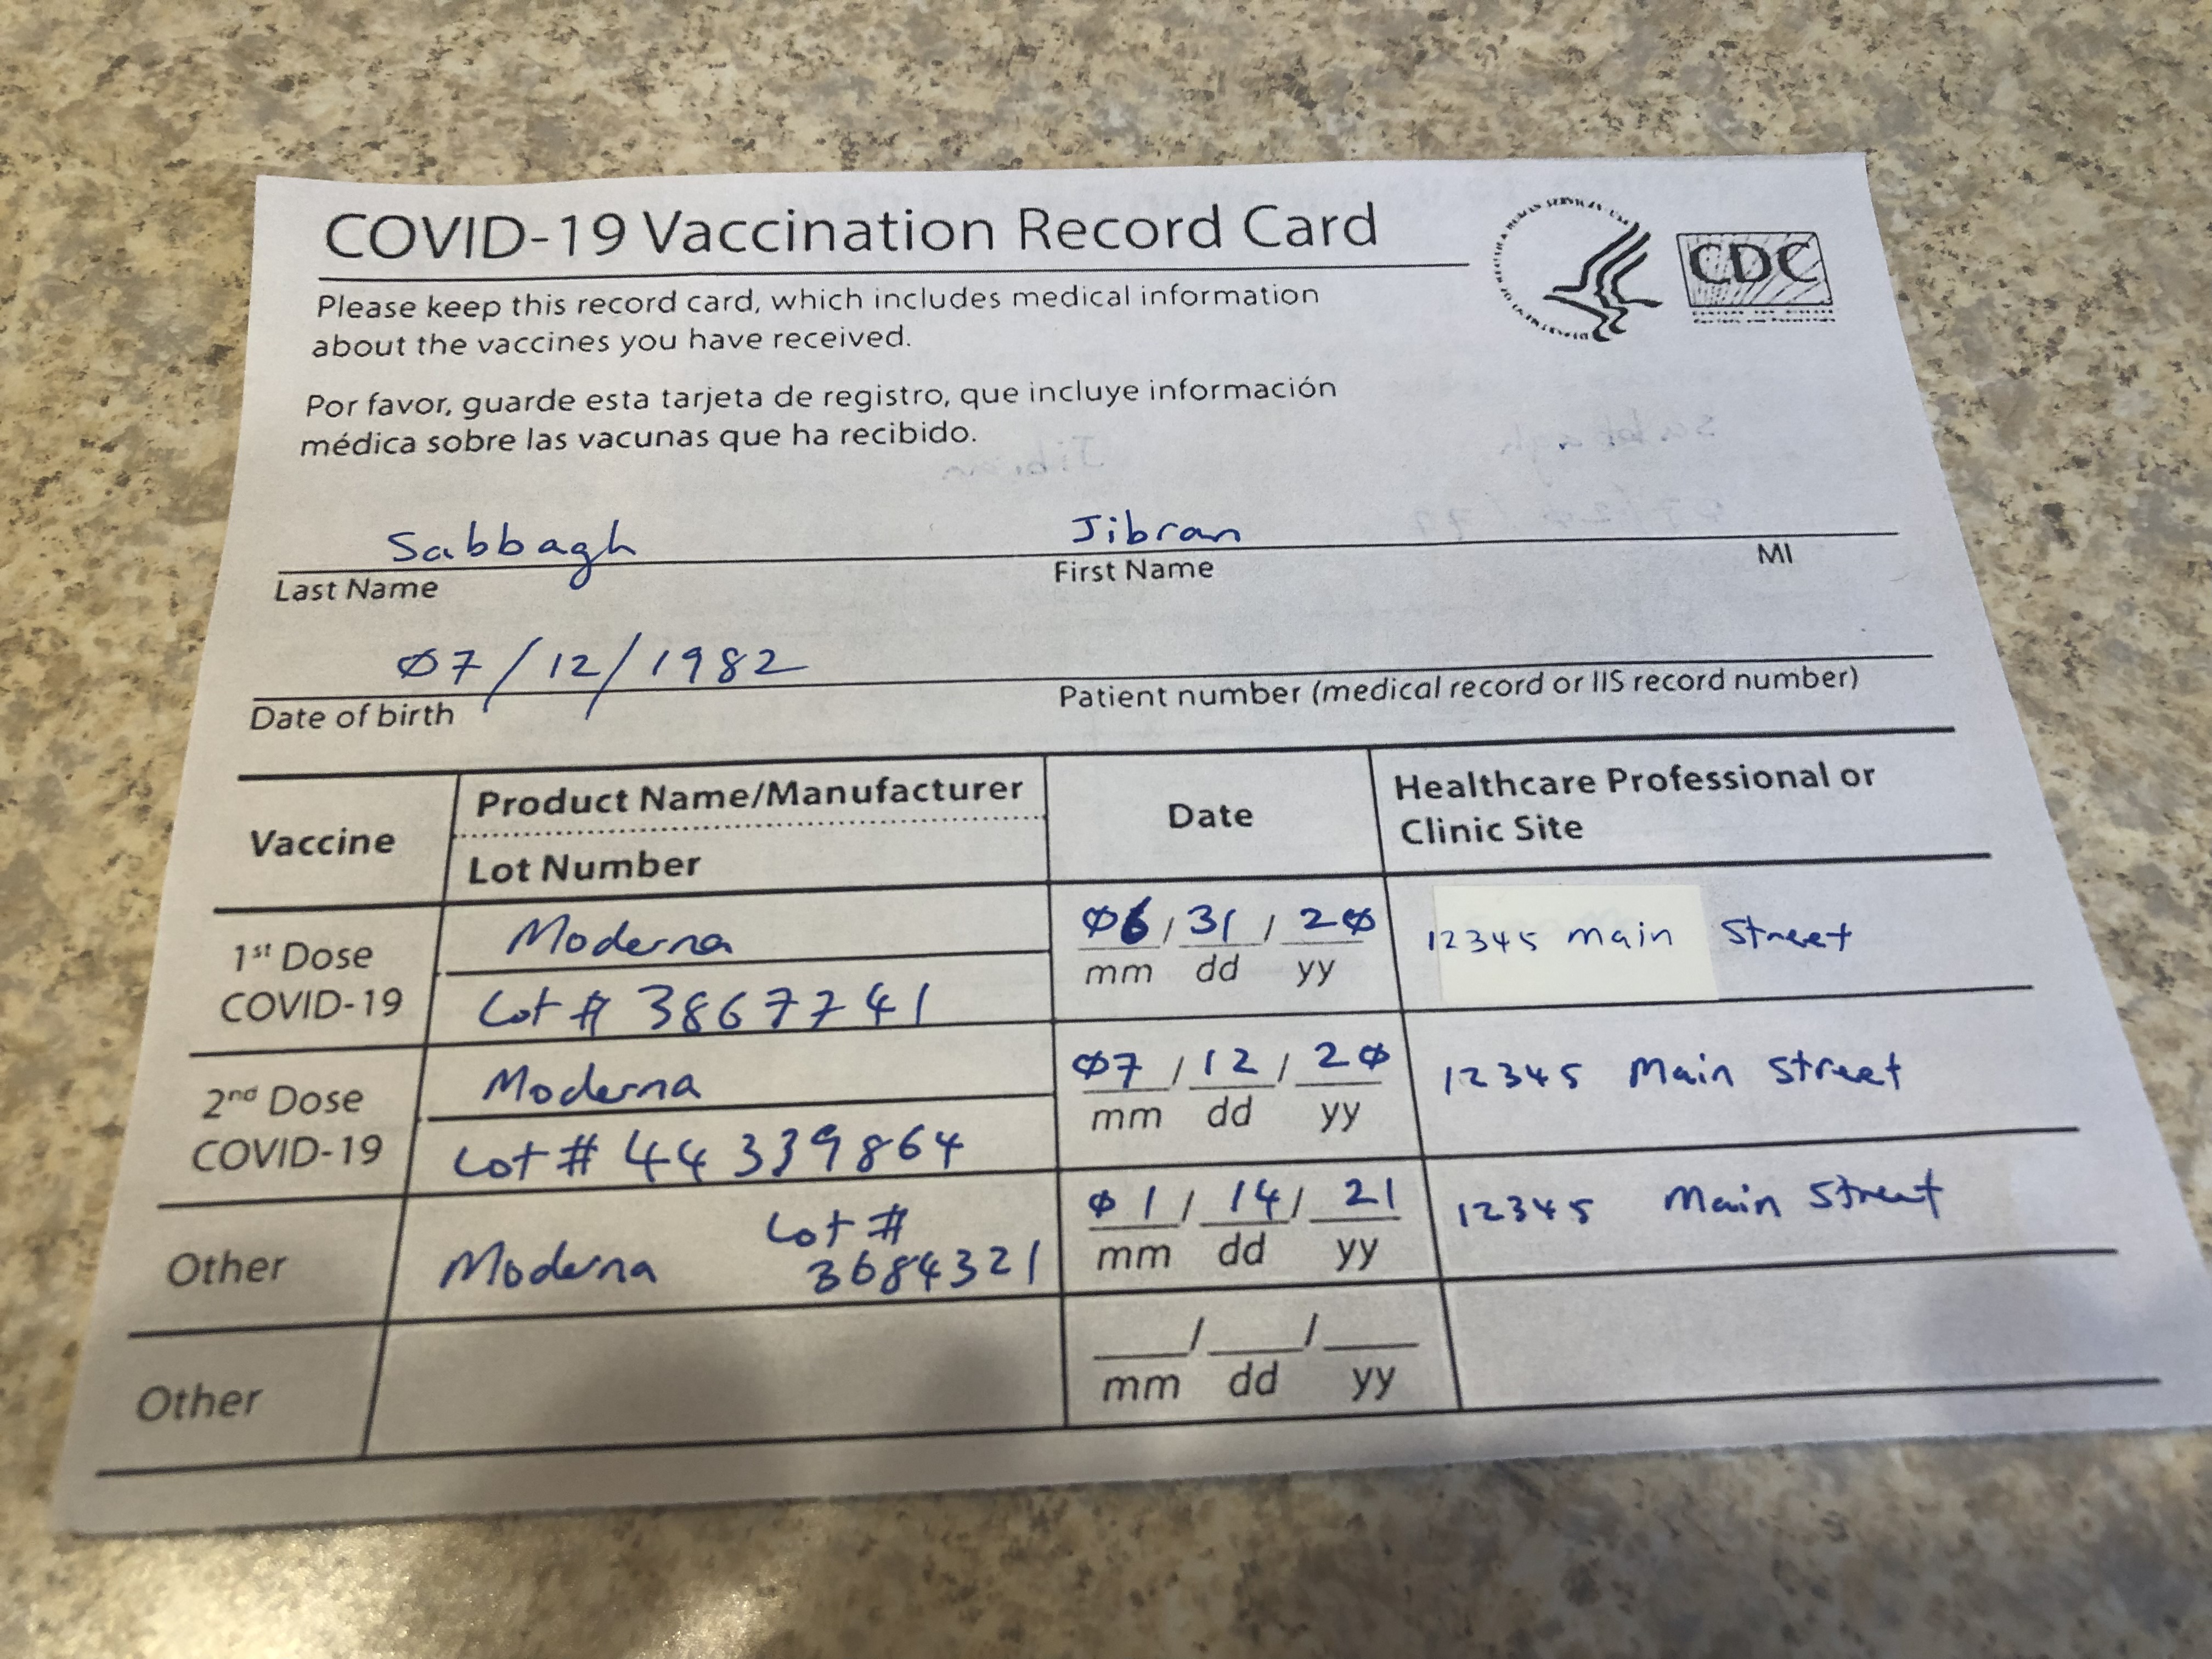 COVID-19 Vaccination Record Card
CDC
Please keep this record card, which includes medical information
about the vaccines you have received.
Por favor, guarde esta tarjeta de registro, que incluye información
médica sobre las vacunas que ha recibido.
Sabbagh Jibran
Last Name First Name MI
07/12/1982
Date of birth Patient number (medical record or IIS record number)
Vaccine
Product Name/Manufacturer
Lot Number
Date
Healthcare Professional or
Clinic Site
1st Dose
COVID-19
Moderna
Lot # 3867741
06/31/20
mm dd yy
12345 Main Street
2nd Dose
COVID-19
Moderna
Lot # 44339864
07/12/20
mm dd yy
12345 Main Street
Other
Moderna
Lot #
3684321
01/14/21
mm dd yy
12345 Main Street
Other
__/__/__
mm dd yy